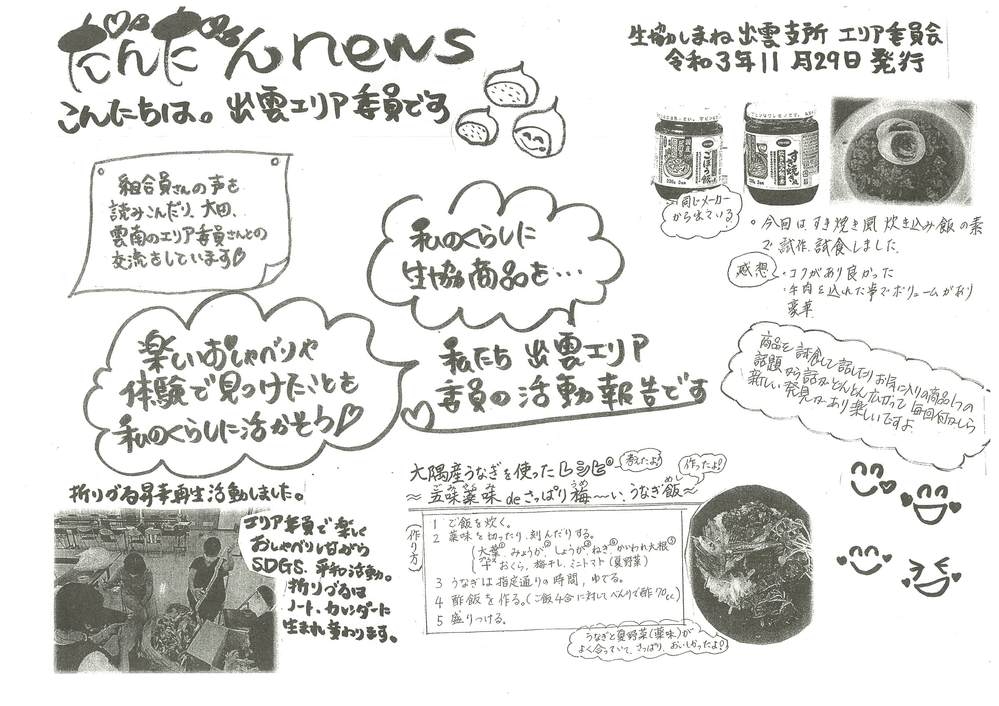 だんだんnews
こんにちは。出雲エリア委員です
生協しまね 出雲支所 エリア委員会
令和3年11月29日発行
組合員さんの声を
読みこんだり、大田、
雲南のエリア委員さんとの
交流をしています♡
私のくらしに
生協商品を…
楽しいおしゃべりや
体験で見つけたことを
私のくらしに活かそう♡
私たち 出雲エリア
委員の活動報告です
ごぼう飯
すき焼き風
同じメーカー
から出ている
。今回はすき焼き風 炊き込み飯の素
で 試作、試食しました。
感想
・コクがあり良かった
・牛肉を込れた事でボリュームがあり
豪華
商品を試食して話したりお気に入りの商品1つの
話題から話がどんどん広がって毎回何かしら
新しい発見があり楽しいですよ
折りづる昇華再生活動しました。
エリア委員で楽しく
おしゃべりしながら
SDGS、平和活動。
折りづるは
ノート、カレンダーに
生まれ変わります。
大隅産うなぎを使ったレシピ
教えたよ!
作ったよ!
≈五味薬味deさっぱり梅〜い、うなぎ飯≈
作り方
1 ご飯を炊く。
2 薬味を切ったり、刻んだりする。
大葉① みょうが② しょうが③ ねぎ④ かいわれ大根⑤
おくら、梅干し、ミニトマト(夏野菜)
3 うなぎは指定通りの時間、ゆでる。
4 酢飯を作る。(ご飯4合に対してべんりで酢70cc)
5 盛りつける。
うなぎと夏野菜(薬味)が
よく合っていて、さっぱり、おいしかったよ!